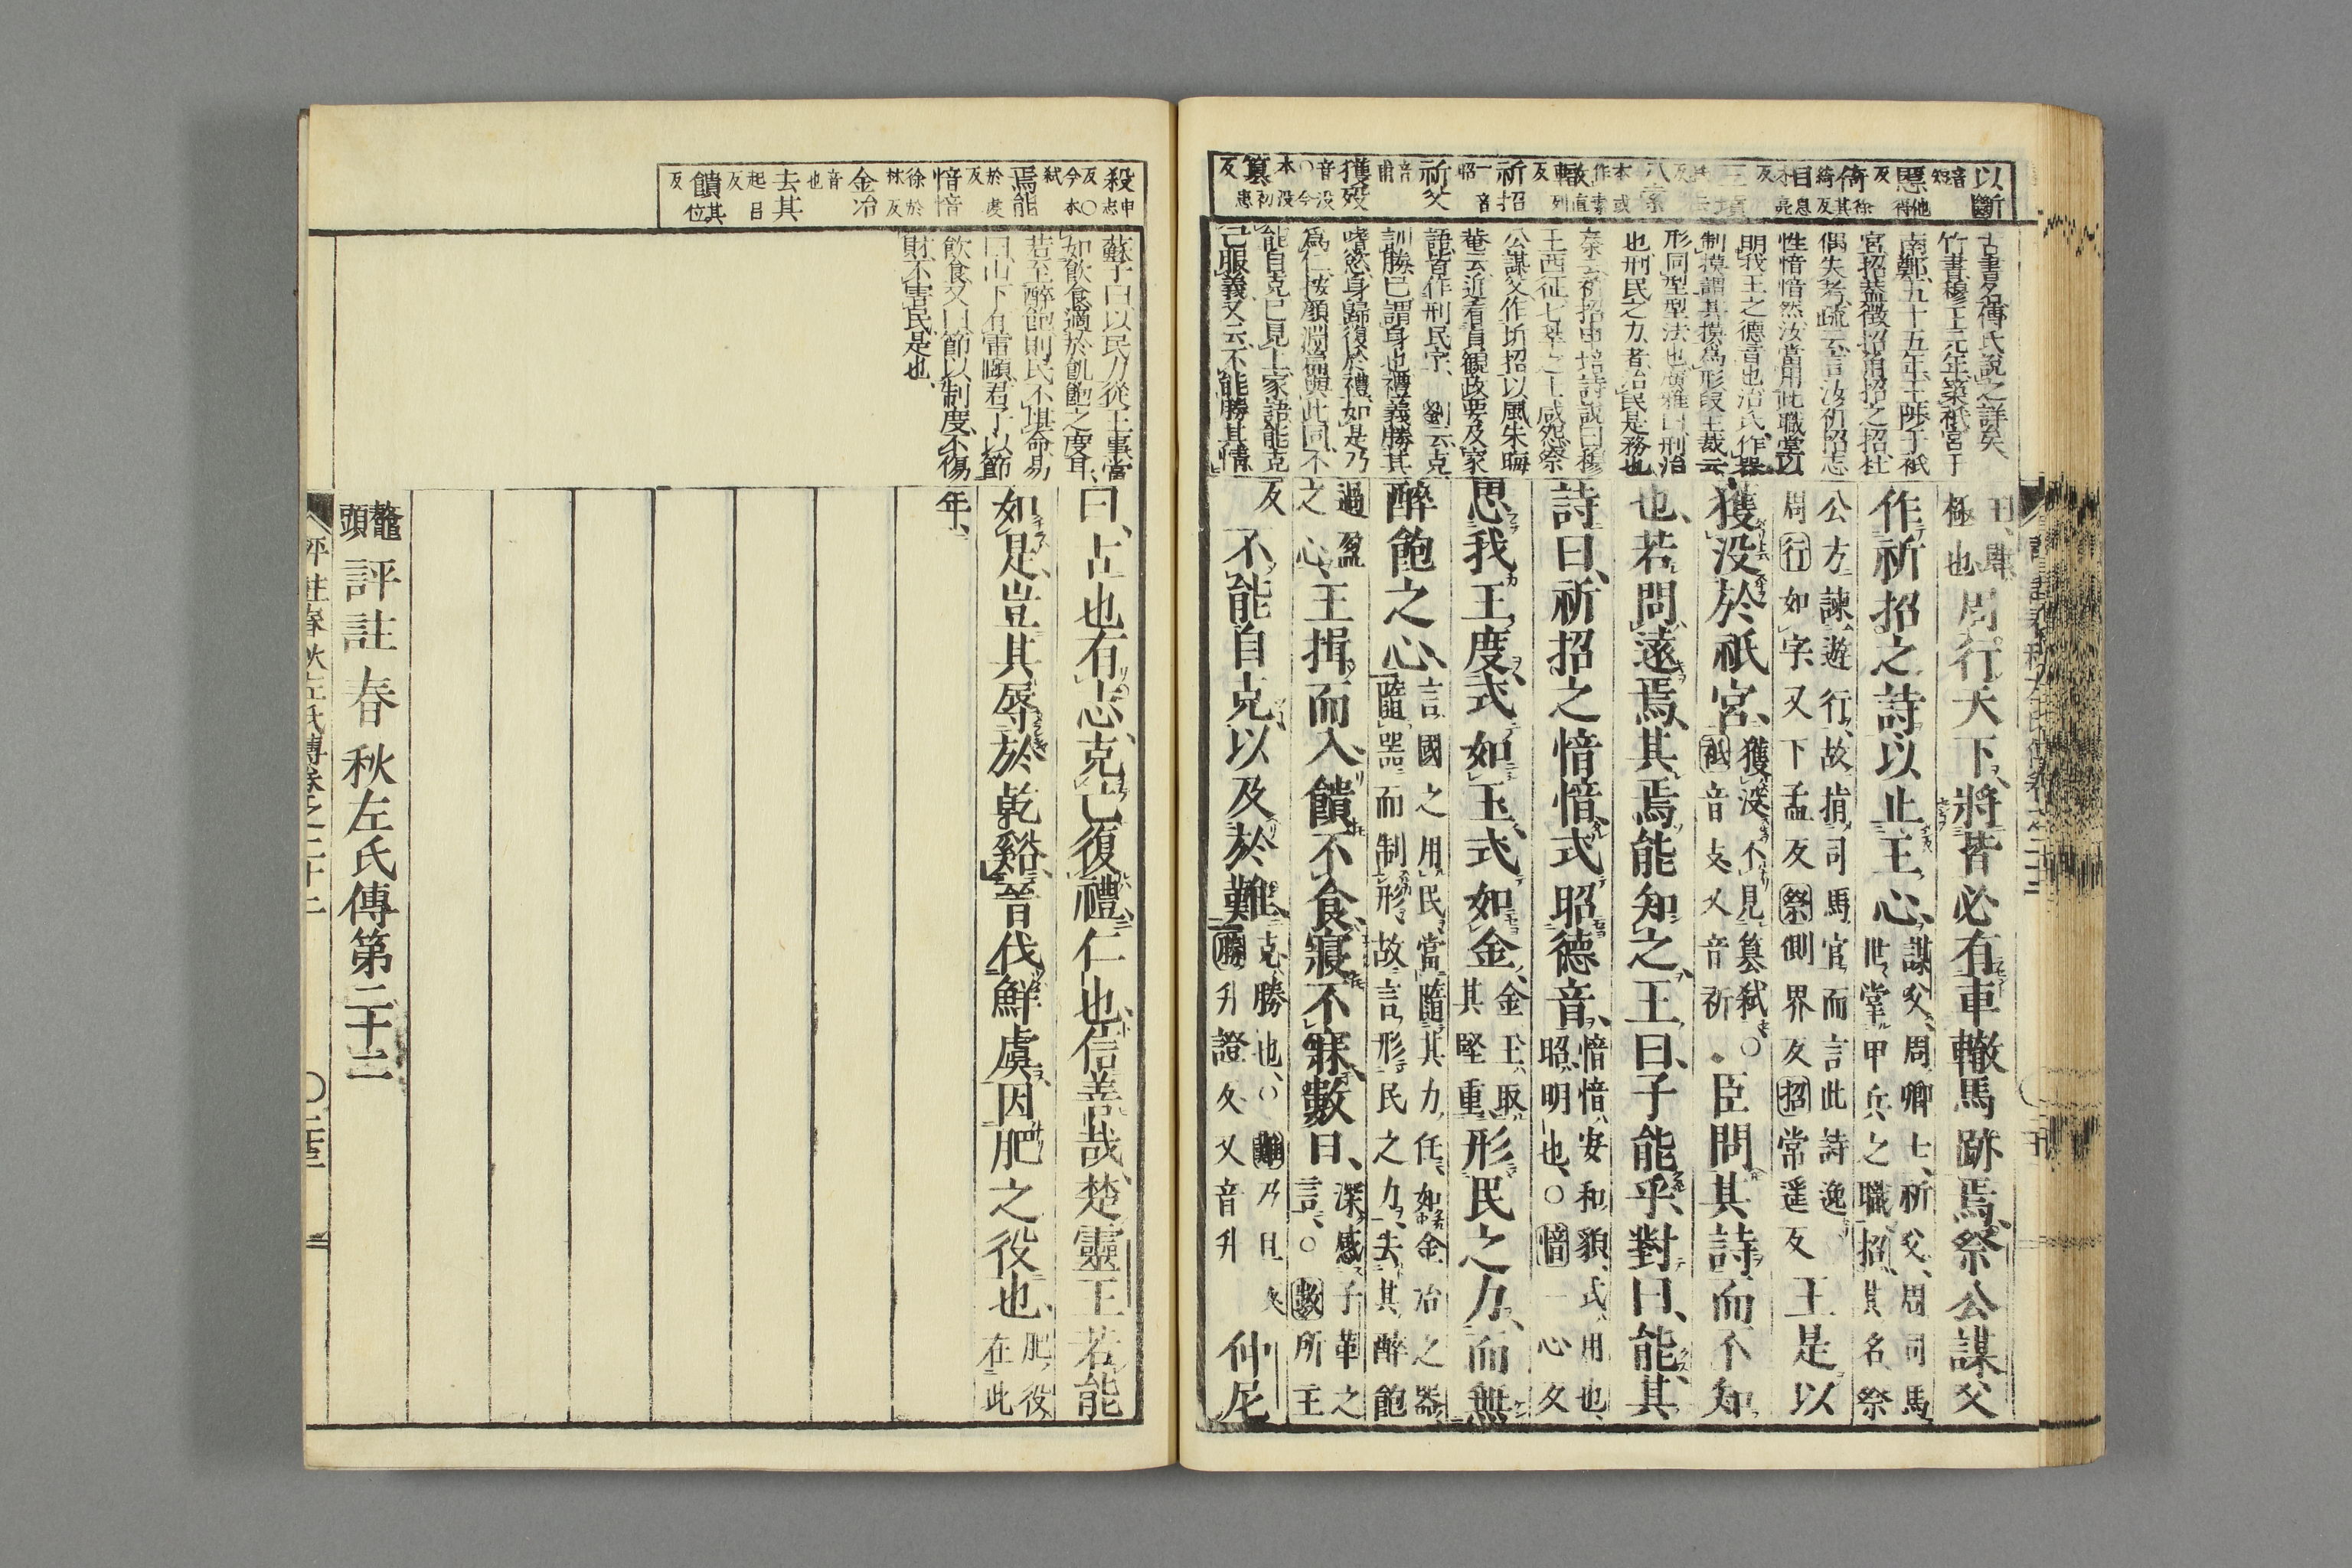 以斷
王肆
極也周行天下將皆必有車轍馬跡焉祭公謀父
作祈招之詩以止王心謀父周卿士祈父周司馬
世掌甲兵之職招其名祭
公方諫遊行故指司馬官而言此詩逸
周行如字又下孟反祭側界反招常遥反王是以
獲没於祇宮獲没不見簒弑○
祇音支又音祈臣問其詩而不知
也若問遠焉其焉能知之王曰子能乎對曰能其
詩曰祈招之愔愔式昭德音愔愔安和貌式用也
昭明也○愔一心反
思我王度式如玉式如金金玉取
其堅重形民之力而無
醉飽之心言國之用民當隨其力任如金冶之器
隨器而制形故言形民之力去其醉飽
過盈
之心王揖而入饋不食寢不寐數日深感子革之
言○數所主
反不能自克以及於難克勝也○難乃旦反
勝升證反又音升仲尼
古書名傅氏說之詳矣
竹書穆王元年築祇宮于
南鄭五十五年王陟于祇
性愔愔然汝當用此職掌以
明我王之德音也
也刑民之力者治民是務也
公謀父作祈招以風朱晦
菴云近看貞觀政要及家
語皆作刑民字劉云克
訓勝己謂身也禮義勝其
嗜慾身歸復於禮如是乃
為仁按顏淵篇與此同不
能自克已見上家語能克
己服義又云不能勝其情
曰古也有志克己復禮仁也信善哉楚靈王若能
如是豈其辱於乾谿晉伐鮮虞因肥之役也肥役
在此
年
蘇子曰以民力從王事當
如飲食適於飢飽之度耳
若至醉飽則民不堪命易
曰山下有雷頤君子以節
飲食又曰節以制度不傷
財不害民是也
殺申志反○今本弑
焉能於虔反
愔愔徐於林反
金冶音也
去其起呂反
饋其位反
鼇頭評註春秋左氏傳第二十二
評註春秋左氏傳卷之二十二